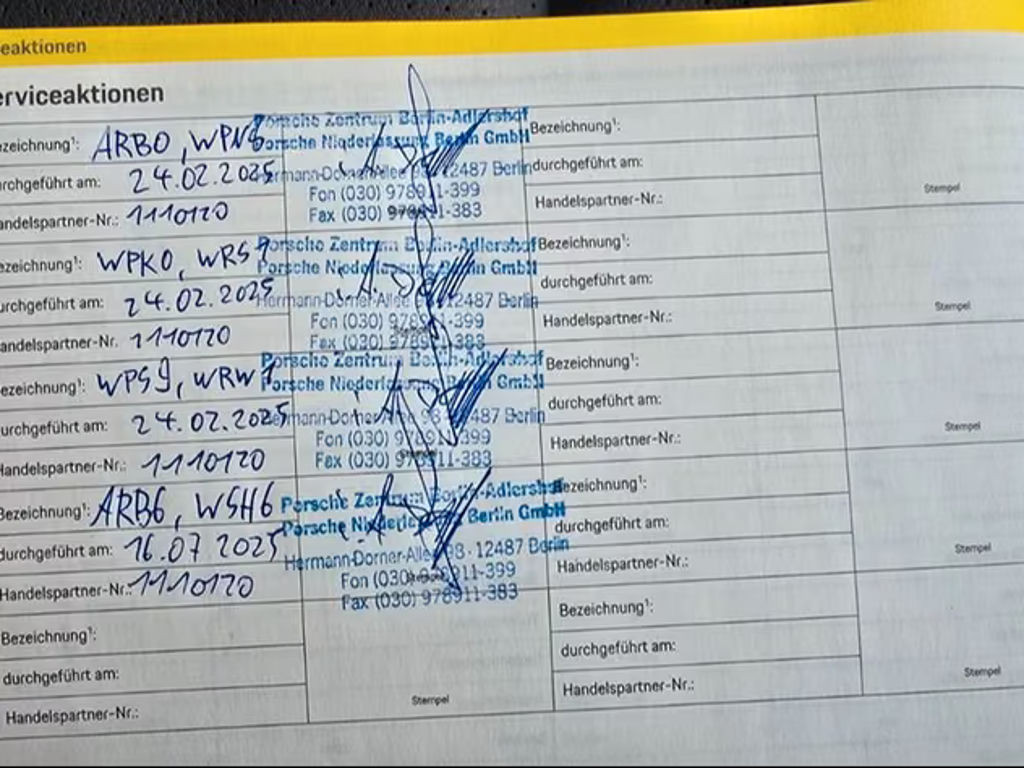 eaktionen
erviceaktionen
ezeichnung¹: ARB0, WPN8
Porsche Zentrum Berlin-Adlershof
Porsche Niederlassung Berlin GmbH
urchgeführt am: 24.02.2025
Hermann-Dorner-Allee 98 · 12487 Berlin
Fon (030) 978911-399
andelspartner-Nr.: 1110120
Fax (030) 978911-383
ezeichnung¹: WPK0, WRS7
Porsche Zentrum Berlin-Adlershof
Porsche Niederlassung Berlin GmbH
urchgeführt am: 24.02.2025
Hermann-Dorner-Allee 98 · 12487 Berlin
Fon (030) 978911-399
andelspartner-Nr. 1110120
Fax (030) 978911-383
ezeichnung¹: WPS9, WRW7
Porsche Zentrum Berlin-Adlershof
Porsche Niederlassung Berlin GmbH
urchgeführt am: 24.02.2025
Hermann-Dorner-Allee 98 · 12487 Berlin
Fon (030) 978911-399
Handelspartner-Nr.: 1110120
Fax (030) 978911-383
Bezeichnung¹: ARB6, WSH6
Porsche Zentrum Berlin-Adlershof
Porsche Niederlassung Berlin GmbH
durchgeführt am: 16.07.2025
Hermann-Dorner-Allee 98 · 12487 Berlin
Fon (030) 978911-399
Handelspartner-Nr.: 1110120
Fax (030) 978911-383
Bezeichnung¹:
durchgeführt am:
Handelspartner-Nr.:
Stempel
Bezeichnung¹:
durchgeführt am:
Handelspartner-Nr.:
Stempel
Bezeichnung¹:
durchgeführt am:
Handelspartner-Nr.:
Stempel
Bezeichnung¹:
durchgeführt am:
Handelspartner-Nr.:
Stempel
Bezeichnung¹:
durchgeführt am:
Handelspartner-Nr.:
Stempel
Bezeichnung¹:
durchgeführt am:
Handelspartner-Nr.:
Stempel